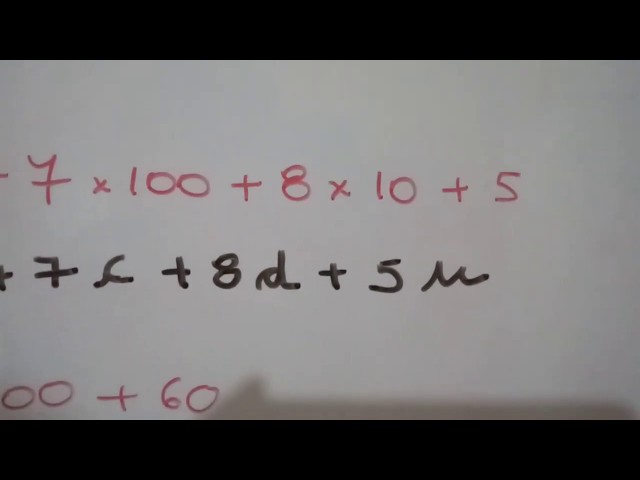 + 7 × 100 + 8 × 10 + 5
+ 7 c + 8 d + 5 u
00 + 60